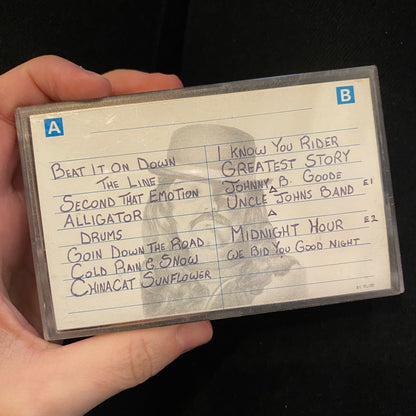 A
BEAT IT ON DOWN
THE LINE
SECOND THAT EMOTION
ALLIGATOR
DRUMS
GOIN DOWN THE ROAD
COLD RAIN & SNOW
CHINACAT SUNFLOWER
B
I KNOW YOU RIDER
GREATEST STORY
JOHNNY B. GOODE
UNCLE JOHNS BAND E1
MIDNIGHT HOUR E2
WE BID YOU GOOD NIGHT